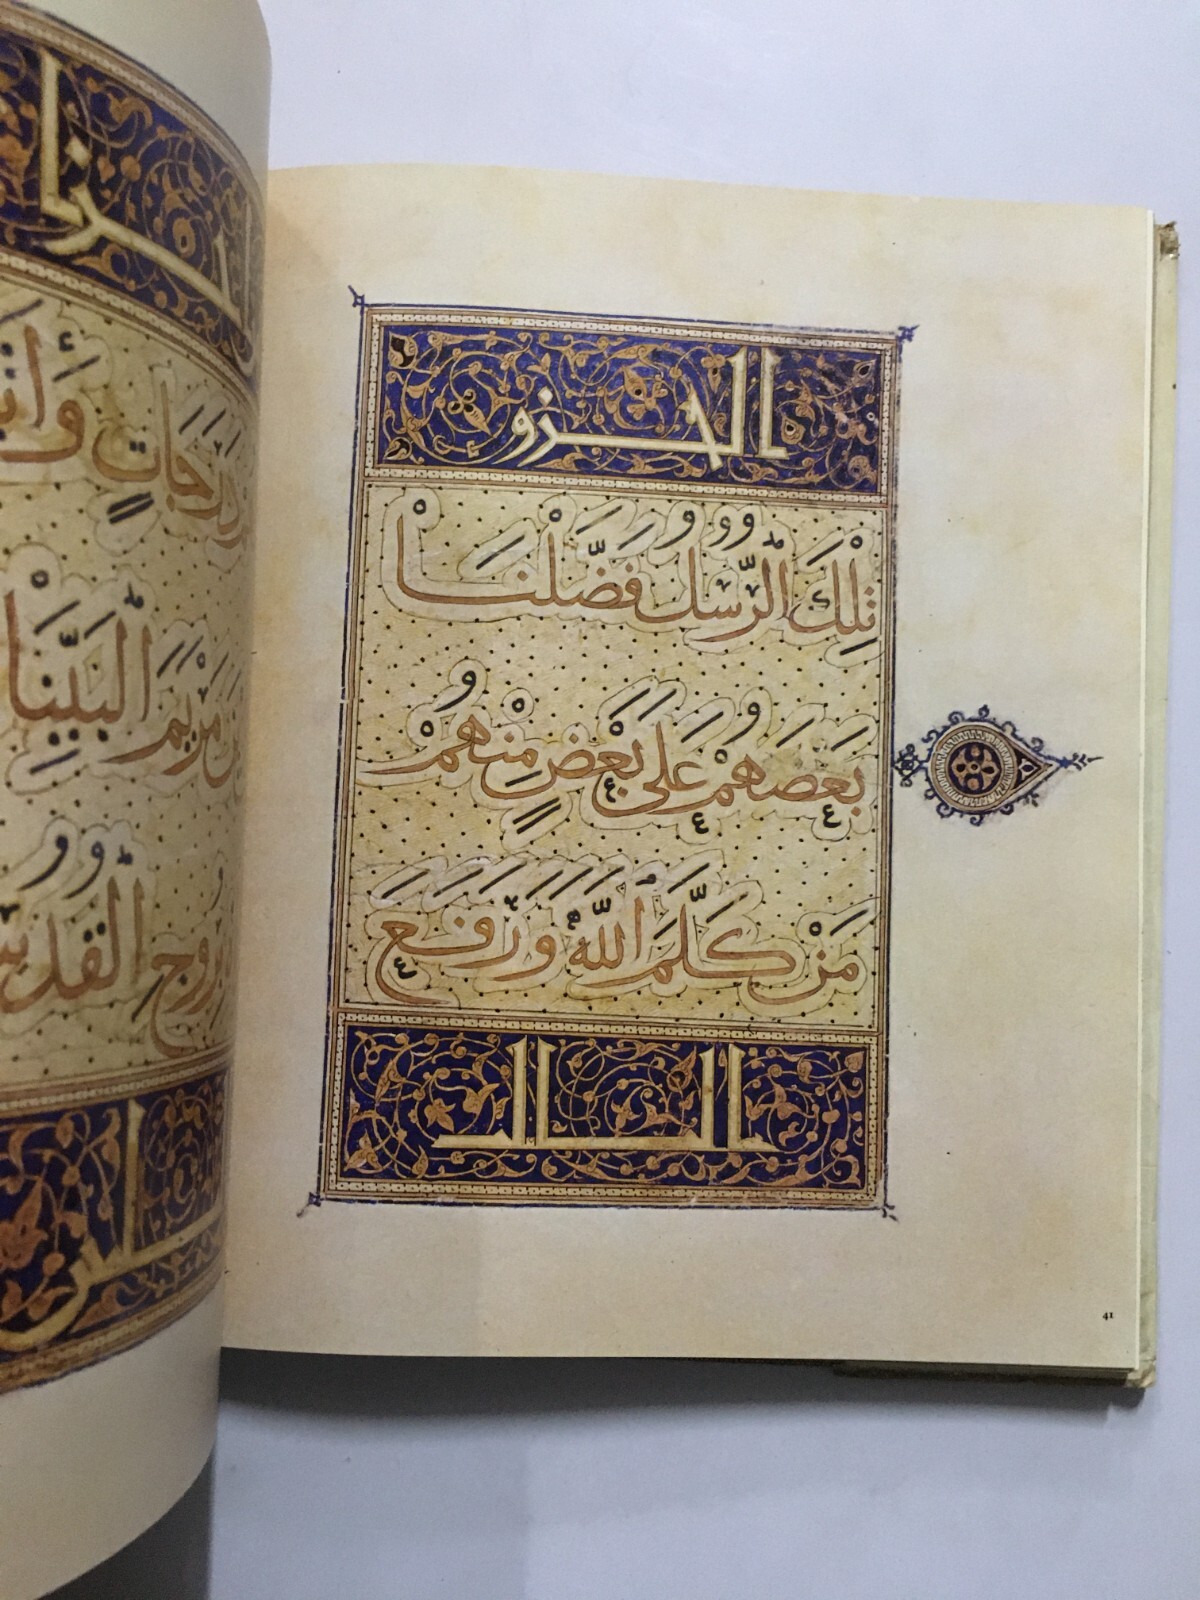 الجزو
تِلْكَ الرُّسُلُ فَضَّلْنَا
بَعْضَهُمْ عَلَى بَعْضٍ مِنْهُمْ
مَنْ كَلَّمَ اللَّهُ وَرَفَعَ
الثالث
41
دَرَجَاتٍ
مَرْيَمَ الْبَيِّنَا
بِرُوحِ الْقُدُسِ